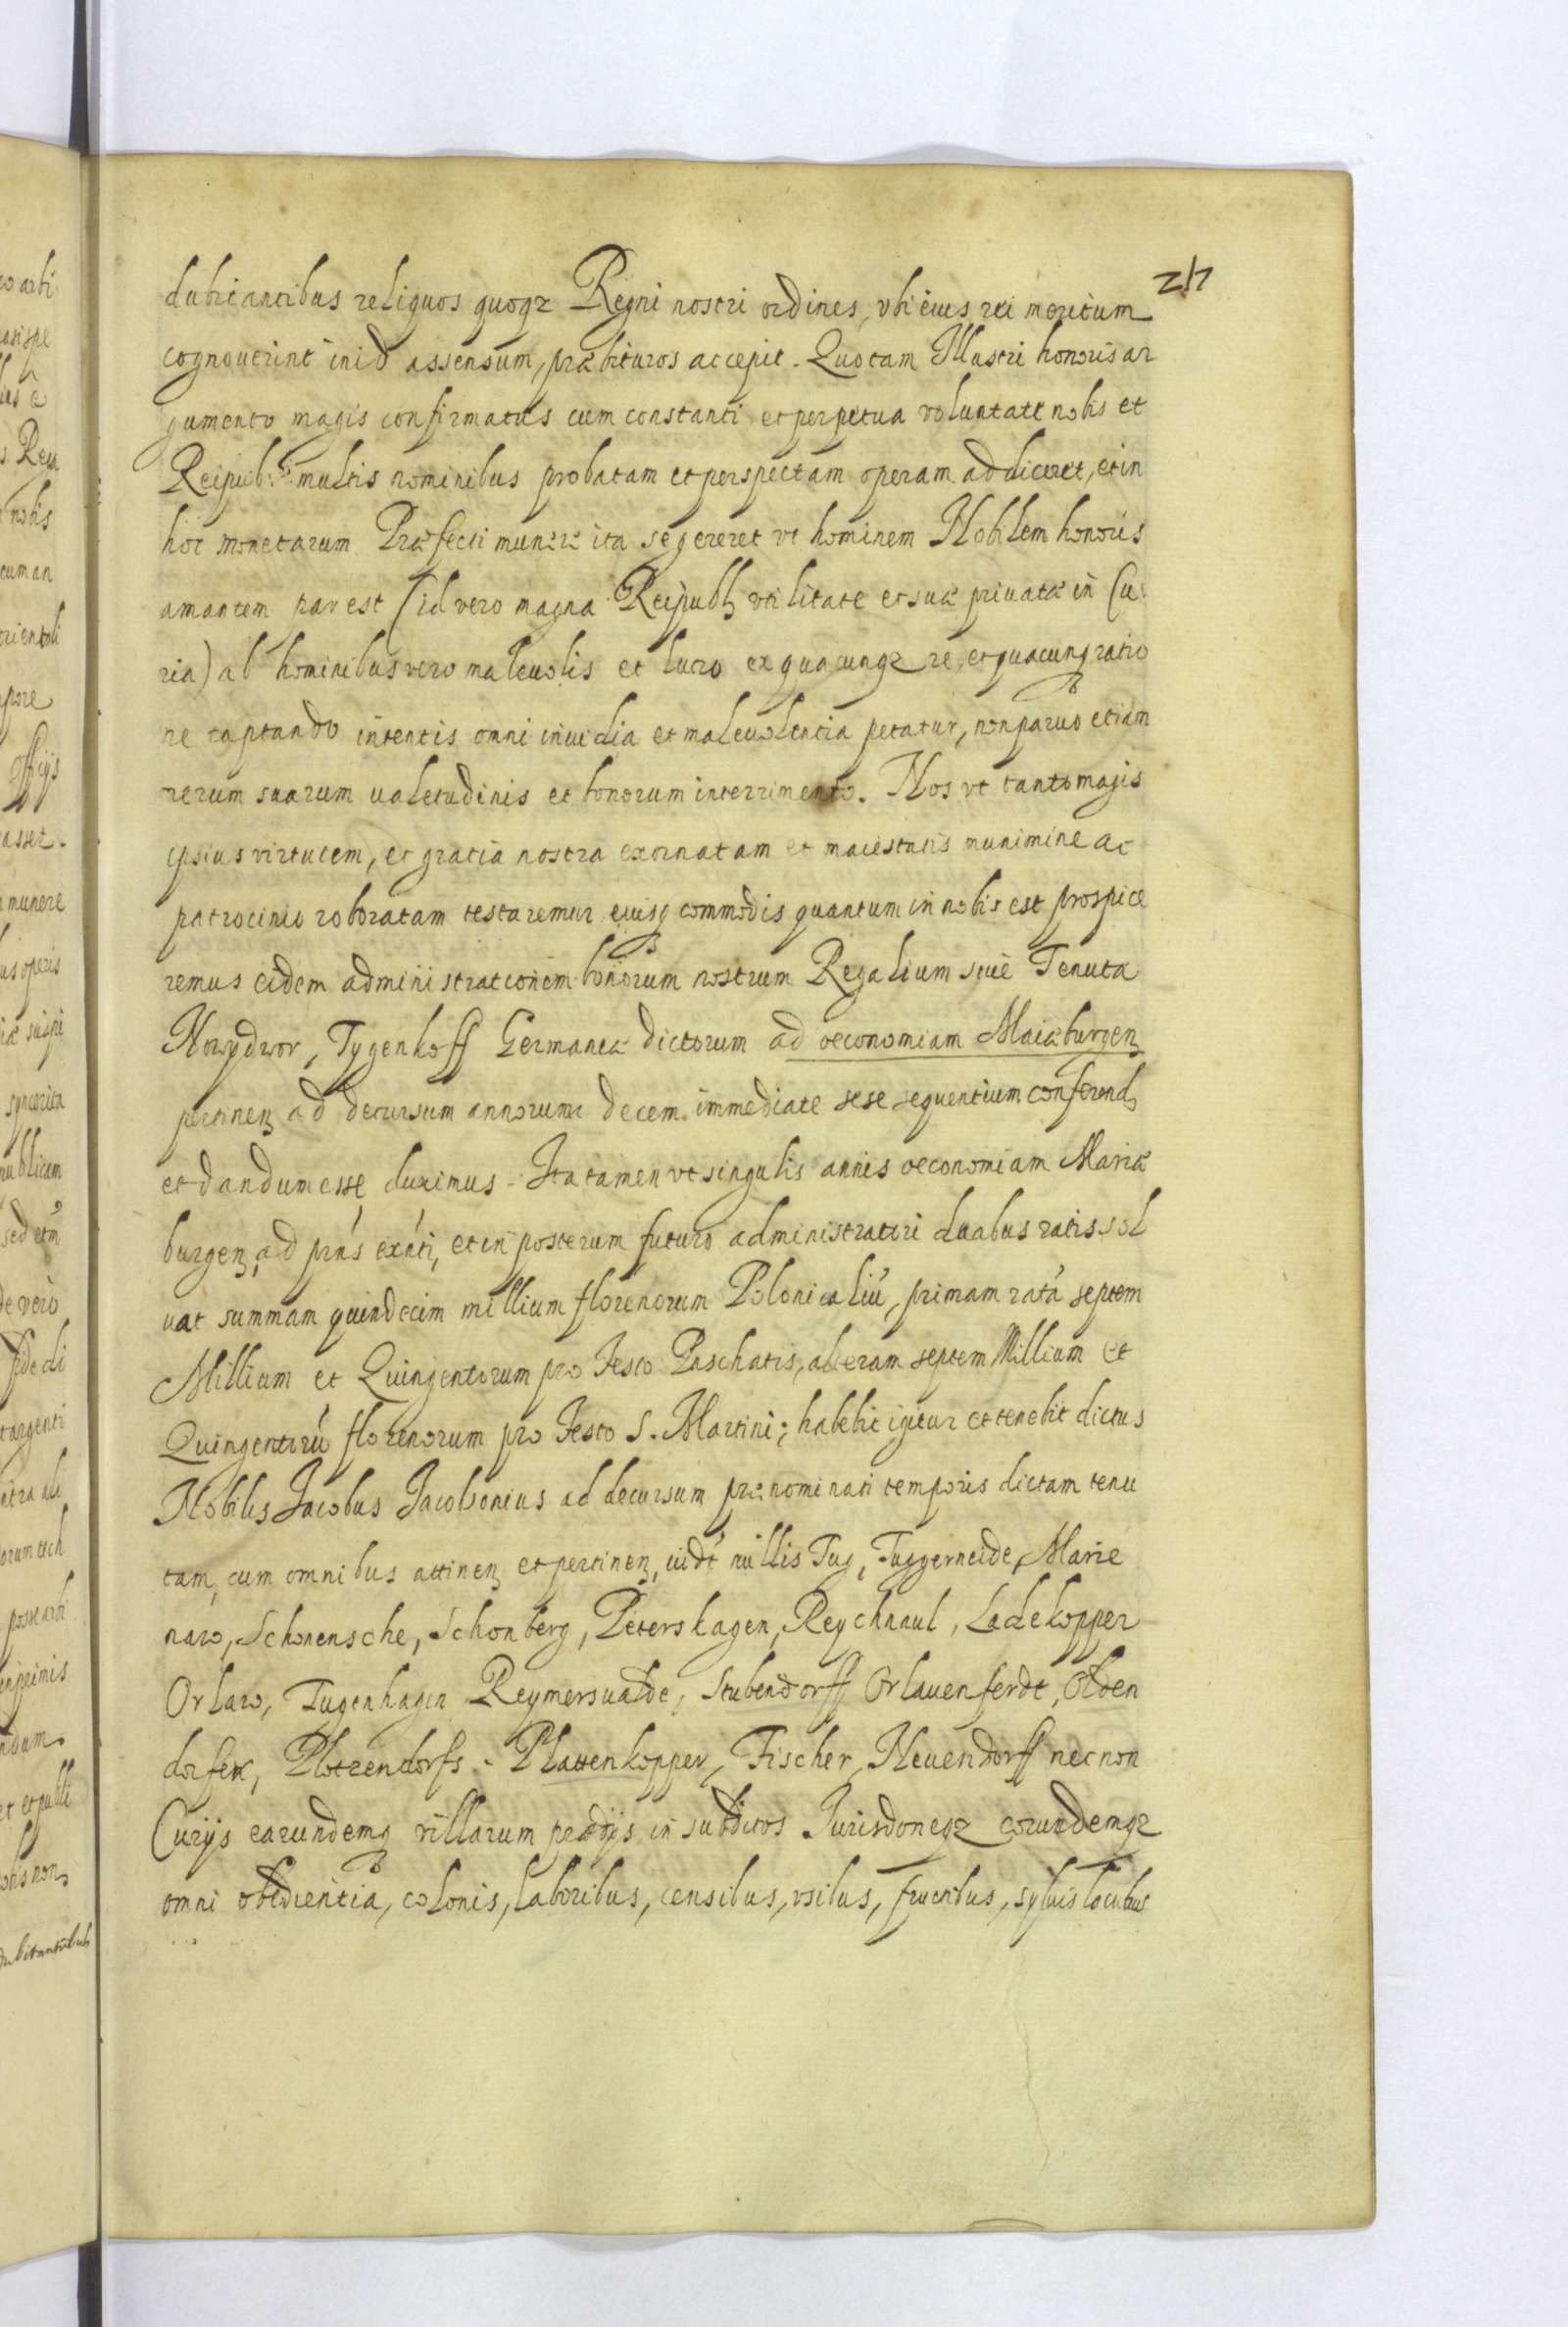 217
dubitantibus reliquos quoqz Regni nostri ordines, vbi eius rei meritum
cognouerint in id assensum, præbituros accepit. Quo tam Illustri honoris ar
gumento magis confirmatus cum constanti et perpetua voluntate nobis et
Reipub: multis nominibus probatam et perspectam operam addiceret, et in
hoc monetarum Præfecti munere ita se gereret vt hominem Nobilem honoris
amantem par est (id vero magna Reipubl vtilitate et suæ priuatæ in Cu
ria) ab hominibus vero maleuolis et lucro ex quacunqz re, et quacunq ratio
ne captando intentis omni inuidia et maleuolentia petatur, non paruo etiam
rerum suarum ualetudinis et bonorum interrimento. Nos vt tanto magis
ipsius virtutem, et gratia nostra exornatam et maiestatis munimine ac
patrocinio roboratam testaremur eiusq commodis quantum in nobis est prospice
remus eidem administrationem bonorum nostrum Regalium siue Tenuta
Nowydwor, Tygenhoff Germanicæ dictorum ad oeconomiam Maiæburgen
pertinen ad decursum annorum decem immediate sese sequentium conferend
et dandum esse duximus. Ita tamen vt singulis annis oeconomiam Mariæ
burgen, ad prńs exńti, et in posterum futuro administratori duabus ratis sol
uat summam quindecim millium florenorum Polonicaliú, primam ratá septem
Millium et Quingentorum pro Festo Paschatis, alteram septem Millium et
Quingentorú florenorum pro Festo S. Martini; habebit igitur et tenebit dictus
Nobilis Jacobus Jacobsonius ad decursum prænominati temporis dictam tenu
tam, cum omnibus attinen et pertinen, uidt́ uillis Tyg, Tuggerneide, Marie
naw, Schonensche, Schonberg, Petershagen, Reychnaul, Ladekopper
Orlaw, Tugenhagen Reymersualde, Stubendorff Orlauenferdt, Olden
dorfer, Plotzendorfs. Plattenkopper, Fischer, Neuendorff necnon
Curijs earundemq villarum prædijs in subditos Jurisdoneqz eorundemqz
omni obedientia, colonis, laboribus, censibus, vsibus, fructibus, syluis lacubus